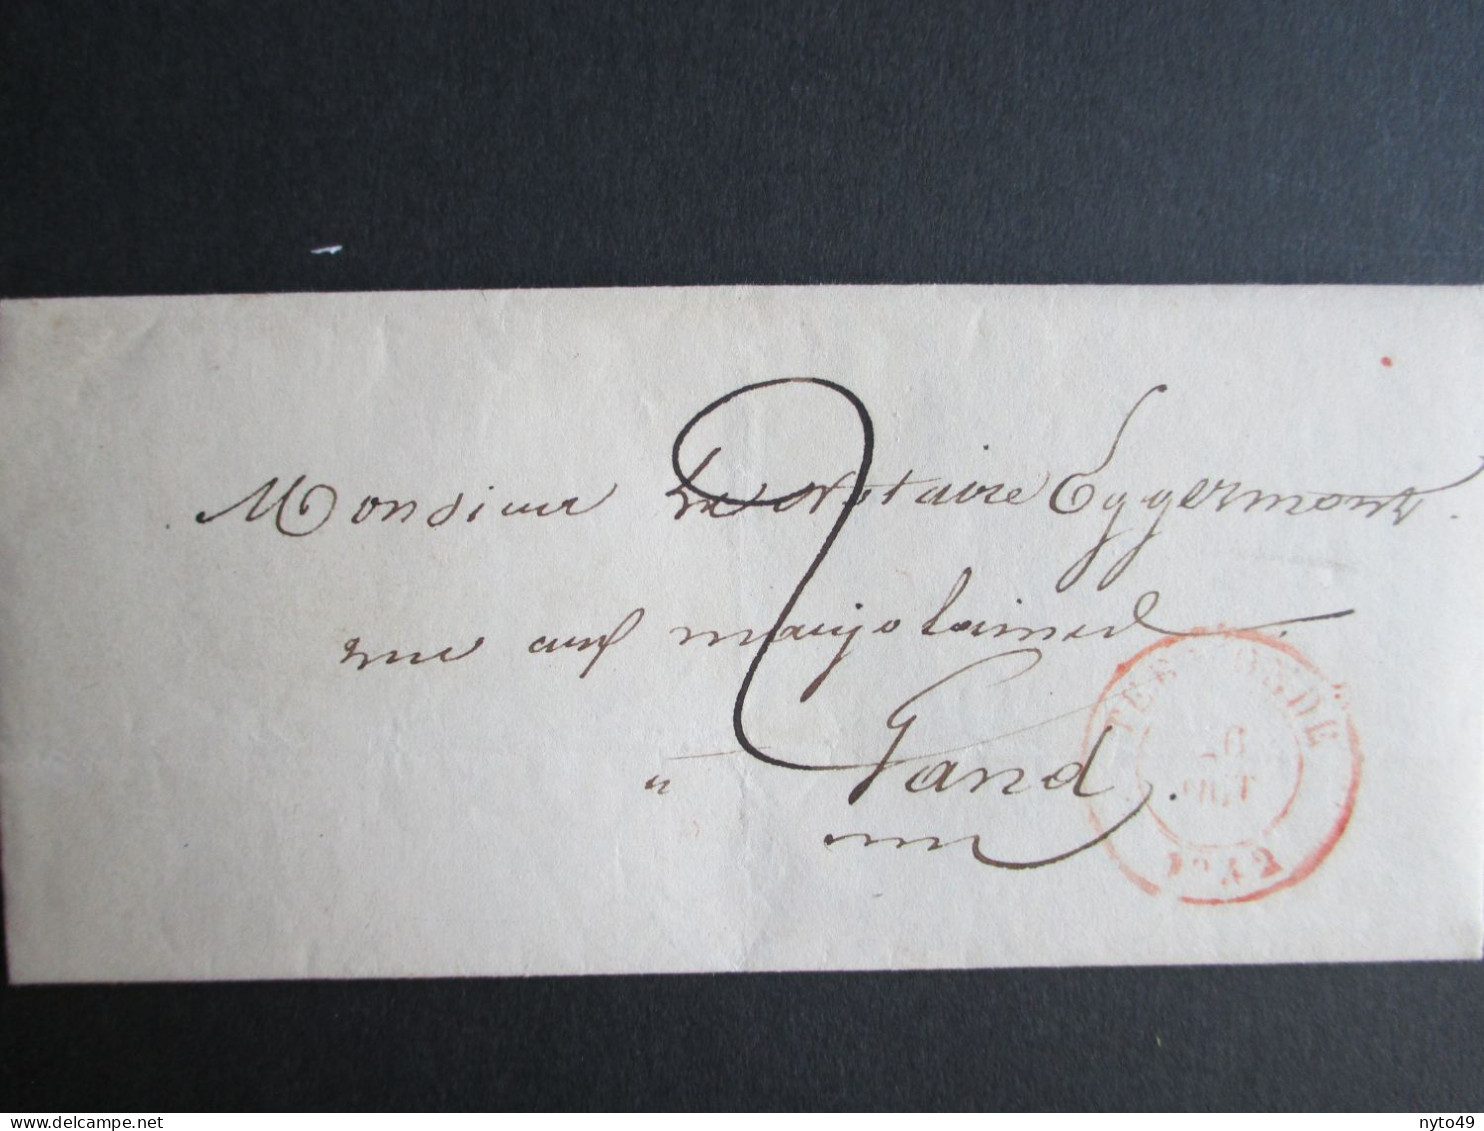 Monsieur le Notaire Eggermont
rue aux marjolaines
Gand.
2
TERMONDE
1842
delcampe.net
nyto49